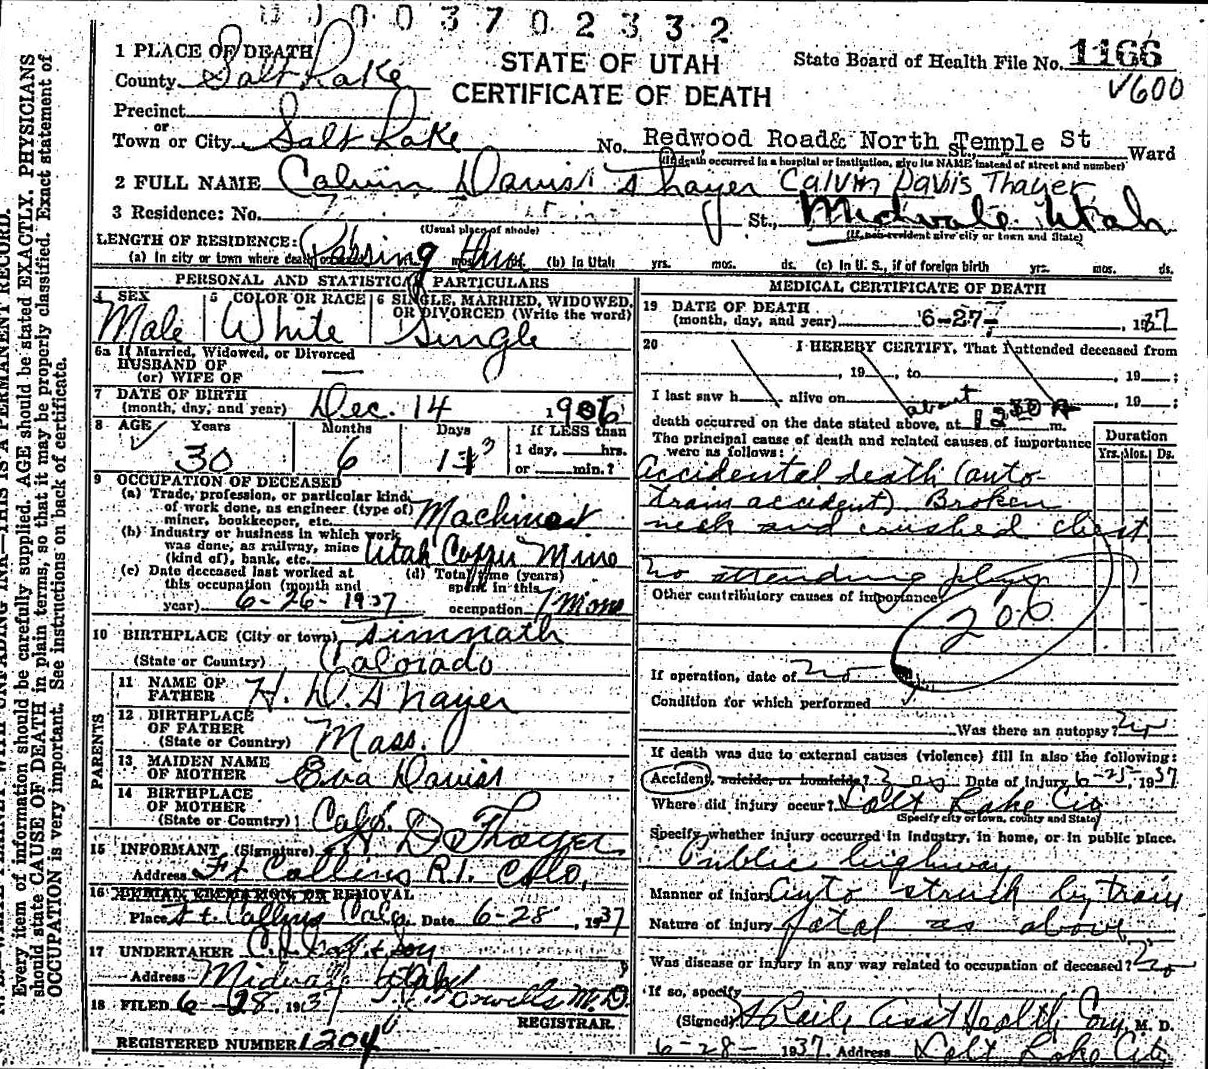 0 1 0 0 3 7 0 2 3 3 2
1 PLACE OF DEATH
County Salt Lake
STATE OF UTAH
CERTIFICATE OF DEATH
State Board of Health File No. 1166
V600
Precinct
or
Town or City Salt Lake No. Redwood Road& North Temple St St., Ward
(If death occurred in a hospital or institution, give its NAME instead of street and number)
2 FULL NAME Calvin Davis Thayer Calvin Davis Thayer
3 Residence: No. St., Midvale Utah
(Usual place of abode) (If non-resident give city or town and State)
LENGTH OF RESIDENCE: Passing thru
(a) In city or town where death occurred mos. (b) In Utah yrs. mos. ds. (c) In U. S., if of foreign birth yrs. mos. ds.
PERSONAL AND STATISTICAL PARTICULARS
4 SEX 5 COLOR OR RACE 6 SINGLE, MARRIED, WIDOWED, OR DIVORCED (Write the word)
Male White Single
6a If Married, Widowed, or Divorced
HUSBAND OF
(or) WIFE OF
7 DATE OF BIRTH
(month, day, and year) Dec. 14 1906
8 AGE Years Months Days If LESS than
30 6 13 1 day, hrs.
or min.?
9 OCCUPATION OF DECEASED
(a) Trade, profession, or particular kind
of work done, as engineer (type of)
miner, bookkeeper, etc. Machinist
(b) Industry or business in which work
was done, as railway, mine
(kind of), bank, etc. Utah Copper Mine
(c) Date deceased last worked at
this occupation (month and
year) 6-26-1937
(d) Total time (years)
spent in this
occupation 7 Mons
10 BIRTHPLACE (City or town) Timnath
(State or Country) Colorado
PARENTS
11 NAME OF
FATHER H. D. Thayer
12 BIRTHPLACE
OF FATHER
(State or Country) Mass.
13 MAIDEN NAME
OF MOTHER Eva Davis
14 BIRTHPLACE
OF MOTHER
(State or Country) Colo.
15 INFORMANT (Signature) H D Thayer
Address Ft Collins R.1. Colo.
16 BURIAL CREMATION OR REMOVAL
Place Ft. Collins Colo. Date 6-28, 1937
17 UNDERTAKER & Son
Address Midvale Utah
18 FILED 6-28, 1937 M.D.
REGISTRAR.
REGISTERED NUMBER 1204
MEDICAL CERTIFICATE OF DEATH
19 DATE OF DEATH
(month, day, and year) 6-27-, 1937
20 I HEREBY CERTIFY, That I attended deceased from
, 19 , to , 19 ;
I last saw h alive on , 19 ;
about
death occurred on the date stated above, at 1230 A m.
The principal cause of death and related causes of importance
were as follows:
Duration
Yrs. Mos. Ds.
Accidental death (auto-
train accident). Broken
neck and crushed chest
no attending physn
Other contributory causes of importance
206
If operation, date of no
Condition for which performed
Was there an autopsy? no
If death was due to external causes (violence) fill in also the following:
Accident, suicide, or homicide? Date of injury 6-25, 1937
Where did injury occur? Salt Lake Co
(Specify city or town, county and State)
Specify whether injury occurred in industry, in home, or in public place.
Public highway
Manner of injury Auto struck by train
Nature of injury fatal as above
Was disease or injury in any way related to occupation of deceased? no
If so, specify
(Signed) Asst Health Com M. D.
6-28- 1937. Address Salt Lake City
Every item of information should be carefully supplied. AGE should be stated EXACTLY. PHYSICIANS
should state CAUSE OF DEATH in plain terms, so that it may be properly classified. Exact statement of
OCCUPATION is very important. See instructions on back of certificate.